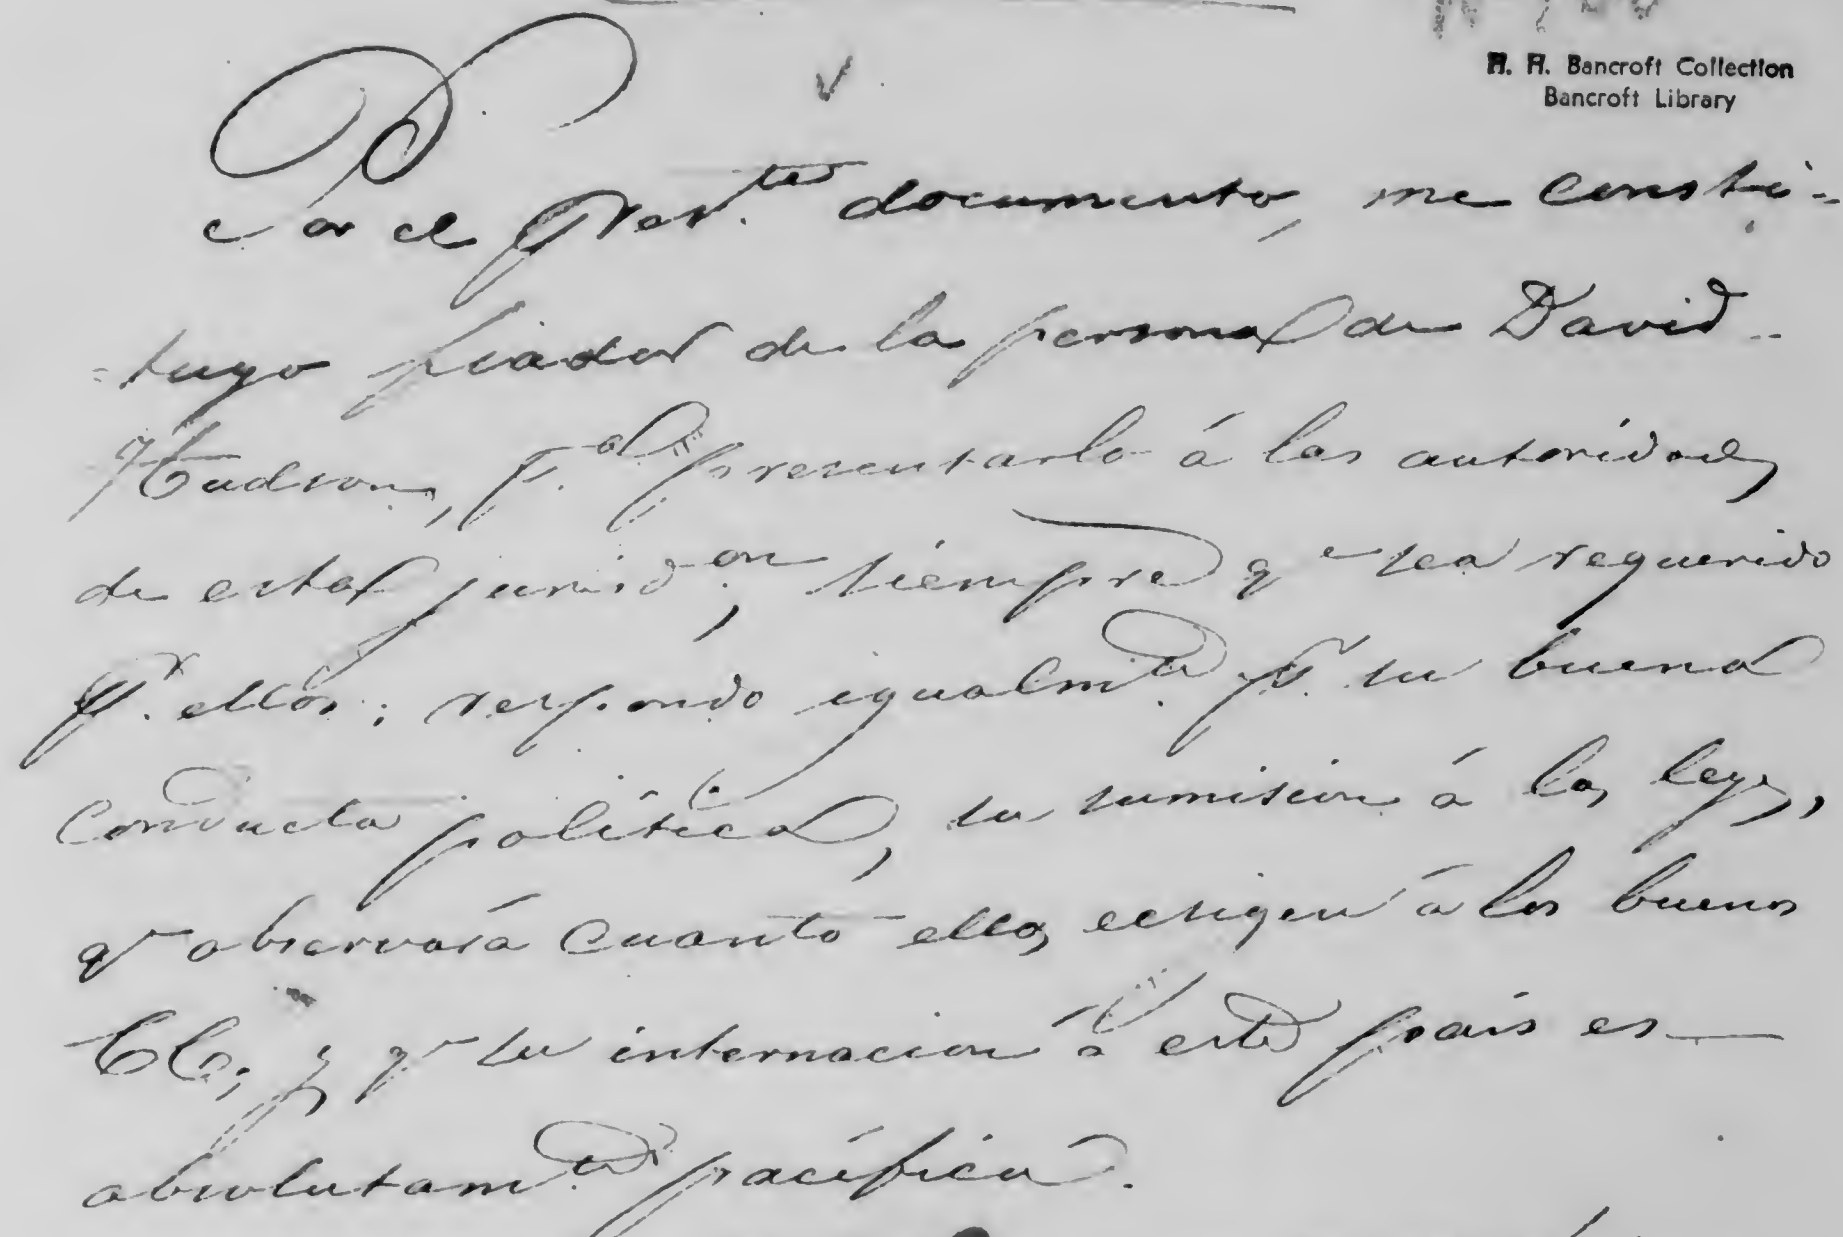 H. H. Bancroft Collection
Bancroft Library
Por el pres.te documento, me consti-
-tuyo fiador de la persona de David
Hudson, p.a presentarlo á las autoridades
de esta jurisd.on, siempre q.e sea requerido
p.r ellas: respondo igualm.te p.r su buena
conducta política, su sumision á las leyes,
q.e observará cuanto ellas ecsigen á los buenos
CC.; y q.e su internacion á este país es
absolutam.te pacífica.